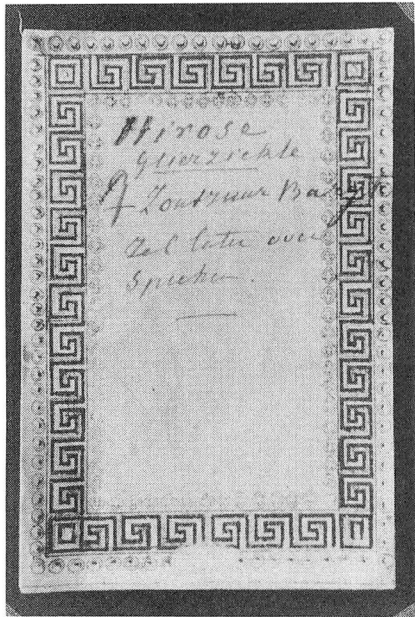 Hirose
klierziekte
Zoutzuur Baryt
Zal later over
Spreken.